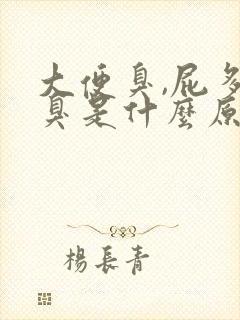 大便臭,屁多
臭是什麼原
楊長青